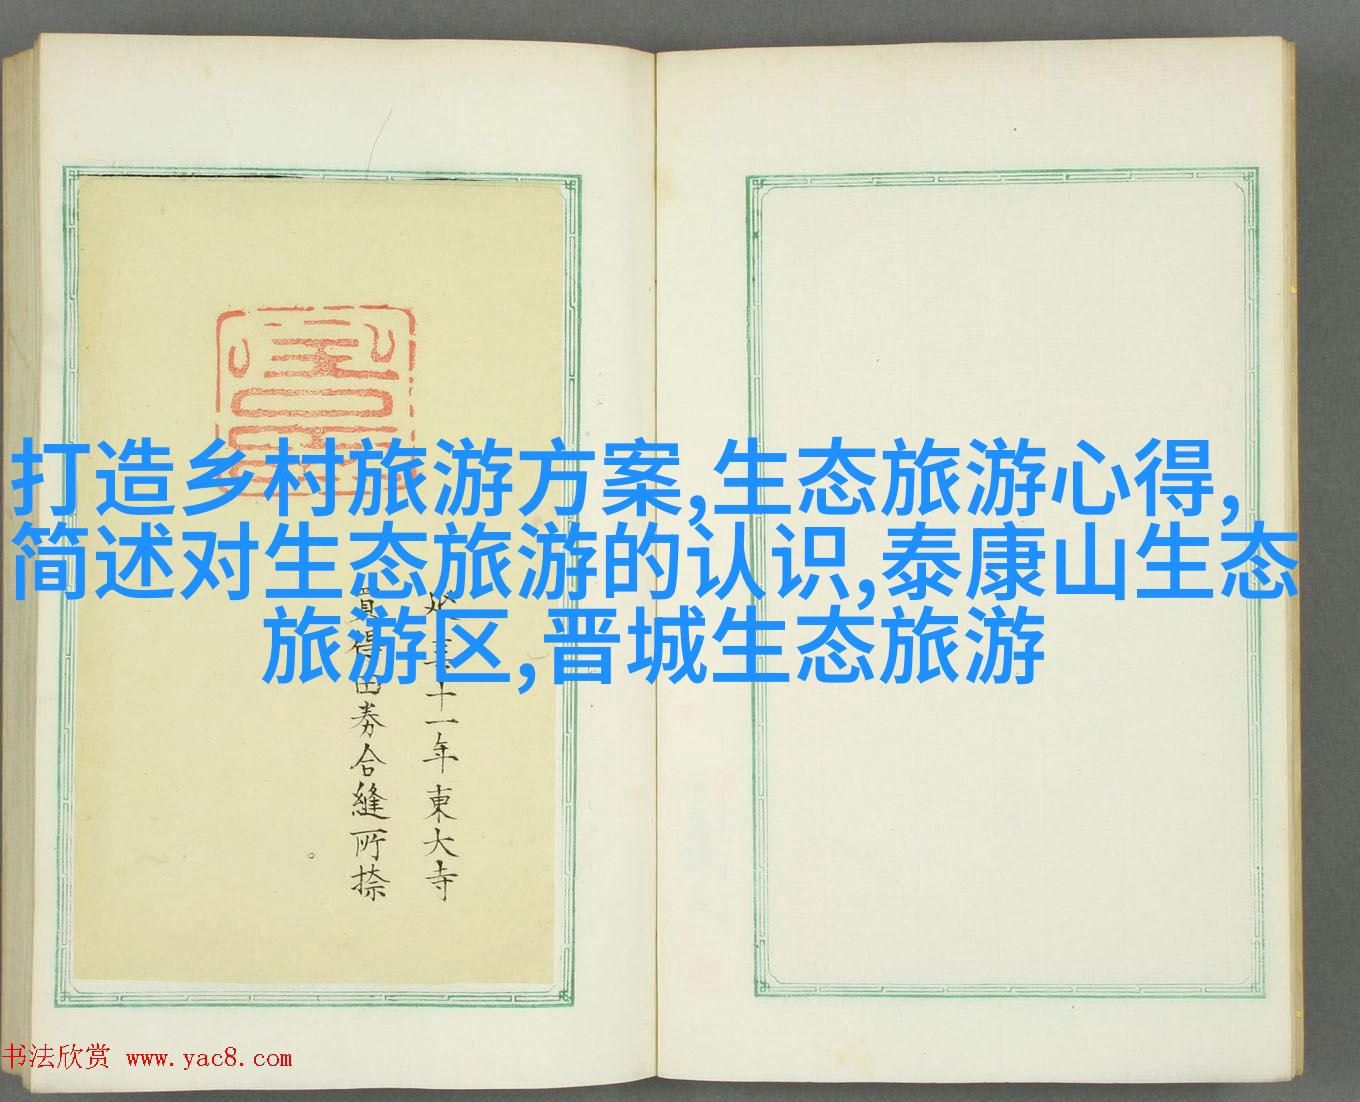 打造乡村旅游方案,生态旅游心得,
简述对生态旅游的认识,泰康山生态
旅游区,晋城生态旅游
十一年東大寺
得田券合縫所捺
书法欣赏 www.yac8.com